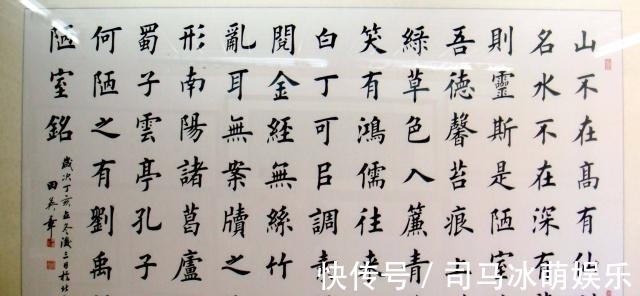 山不在髙有仙
名水不在深有
則靈斯是陋室
吾德馨苔痕上
綠草色入簾青
笑有鴻儒往来
白丁可㠯調素
閱金經無絲竹
亂耳無案牘之
形南陽諸葛廬
蜀子雲亭孔子
何陋之有劉禹
陋室銘
歲次丁亥立冬後三日於北
田英章
快传号 / 司马冰萌娱乐